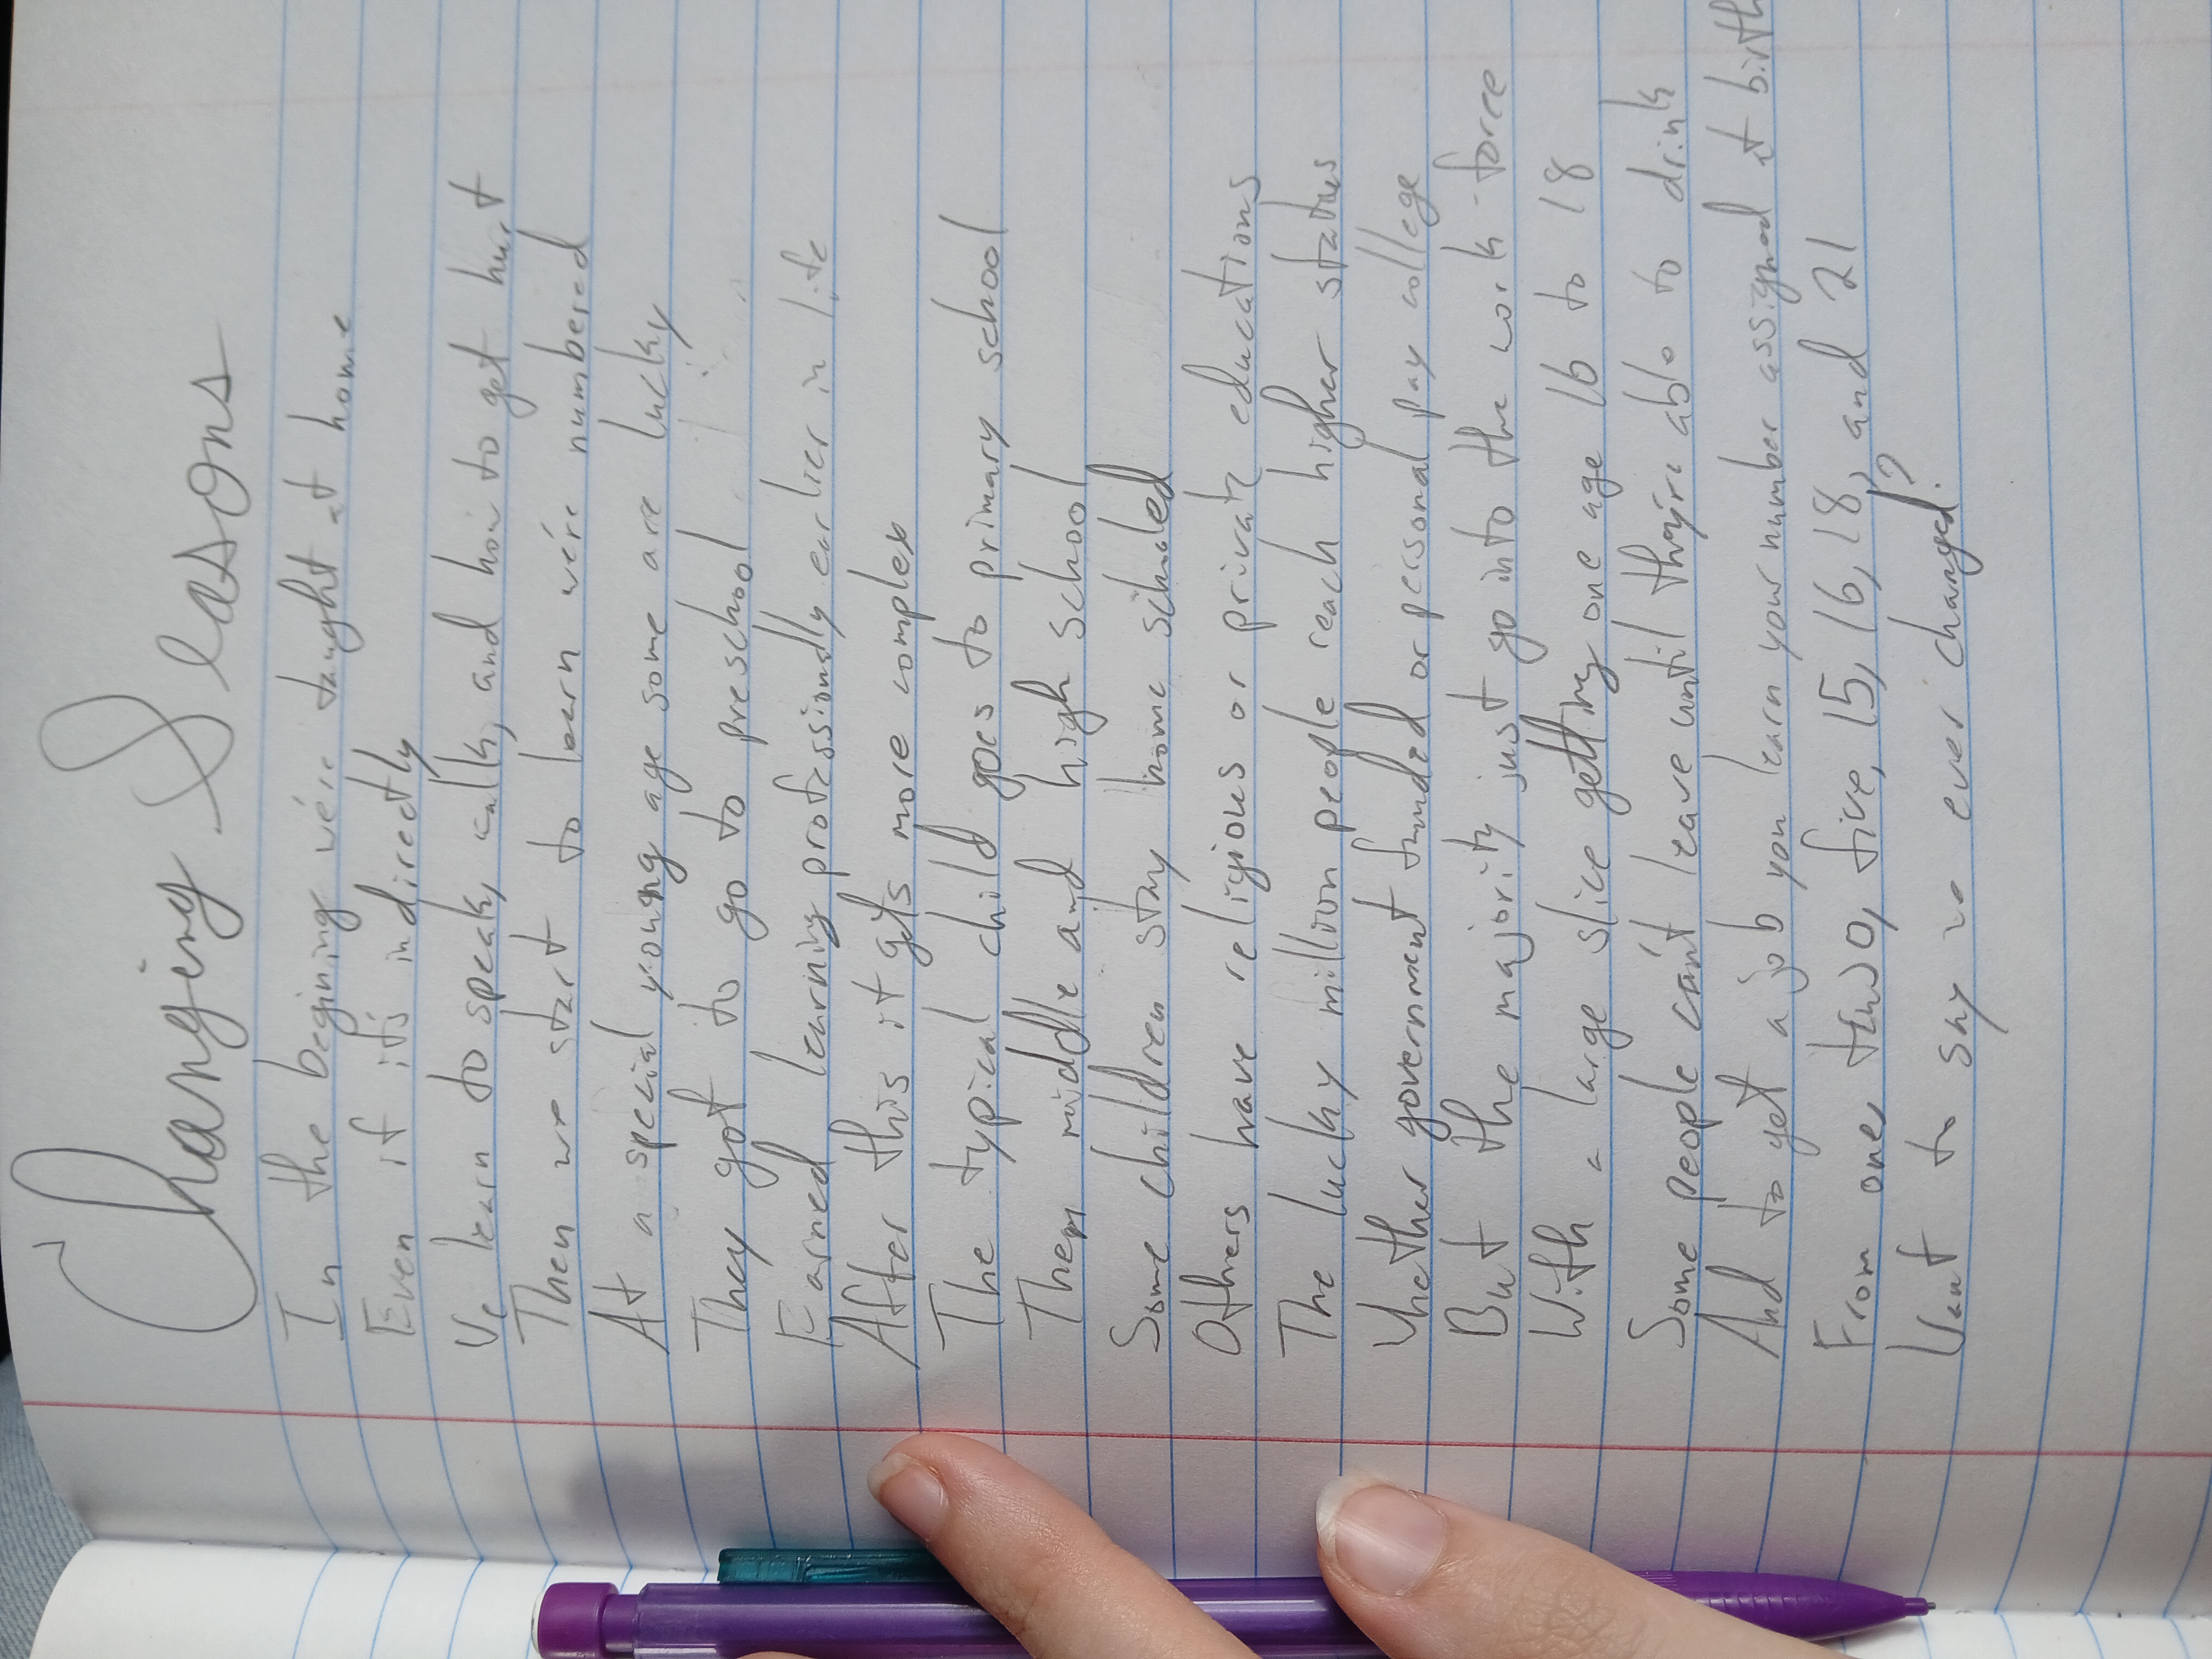 Changing Seasons
In the begining we're taught at home
Even if it's indirectly
We learn to speak, walk, and how to get hurt
Then we start to learn we're numbered
At a special young age some are lucky
They got to go to preschool
Earned learning professionally earlier in life
After this it gets more complex
The typical child goes to primary school
Then middle and high school
Some children stay home schooled
Others have religious or private educations
The lucky million people reach higher status
Whether government funded or personal pay college
But the majority just go into the work-force
With a large slice getting one age 16 to 18
Some people can't leave until they're able to drink
And to get a job you learn your number assigned at birth
From one, two, five, 15, 16, 18, and 21
Want to say we ever changed?